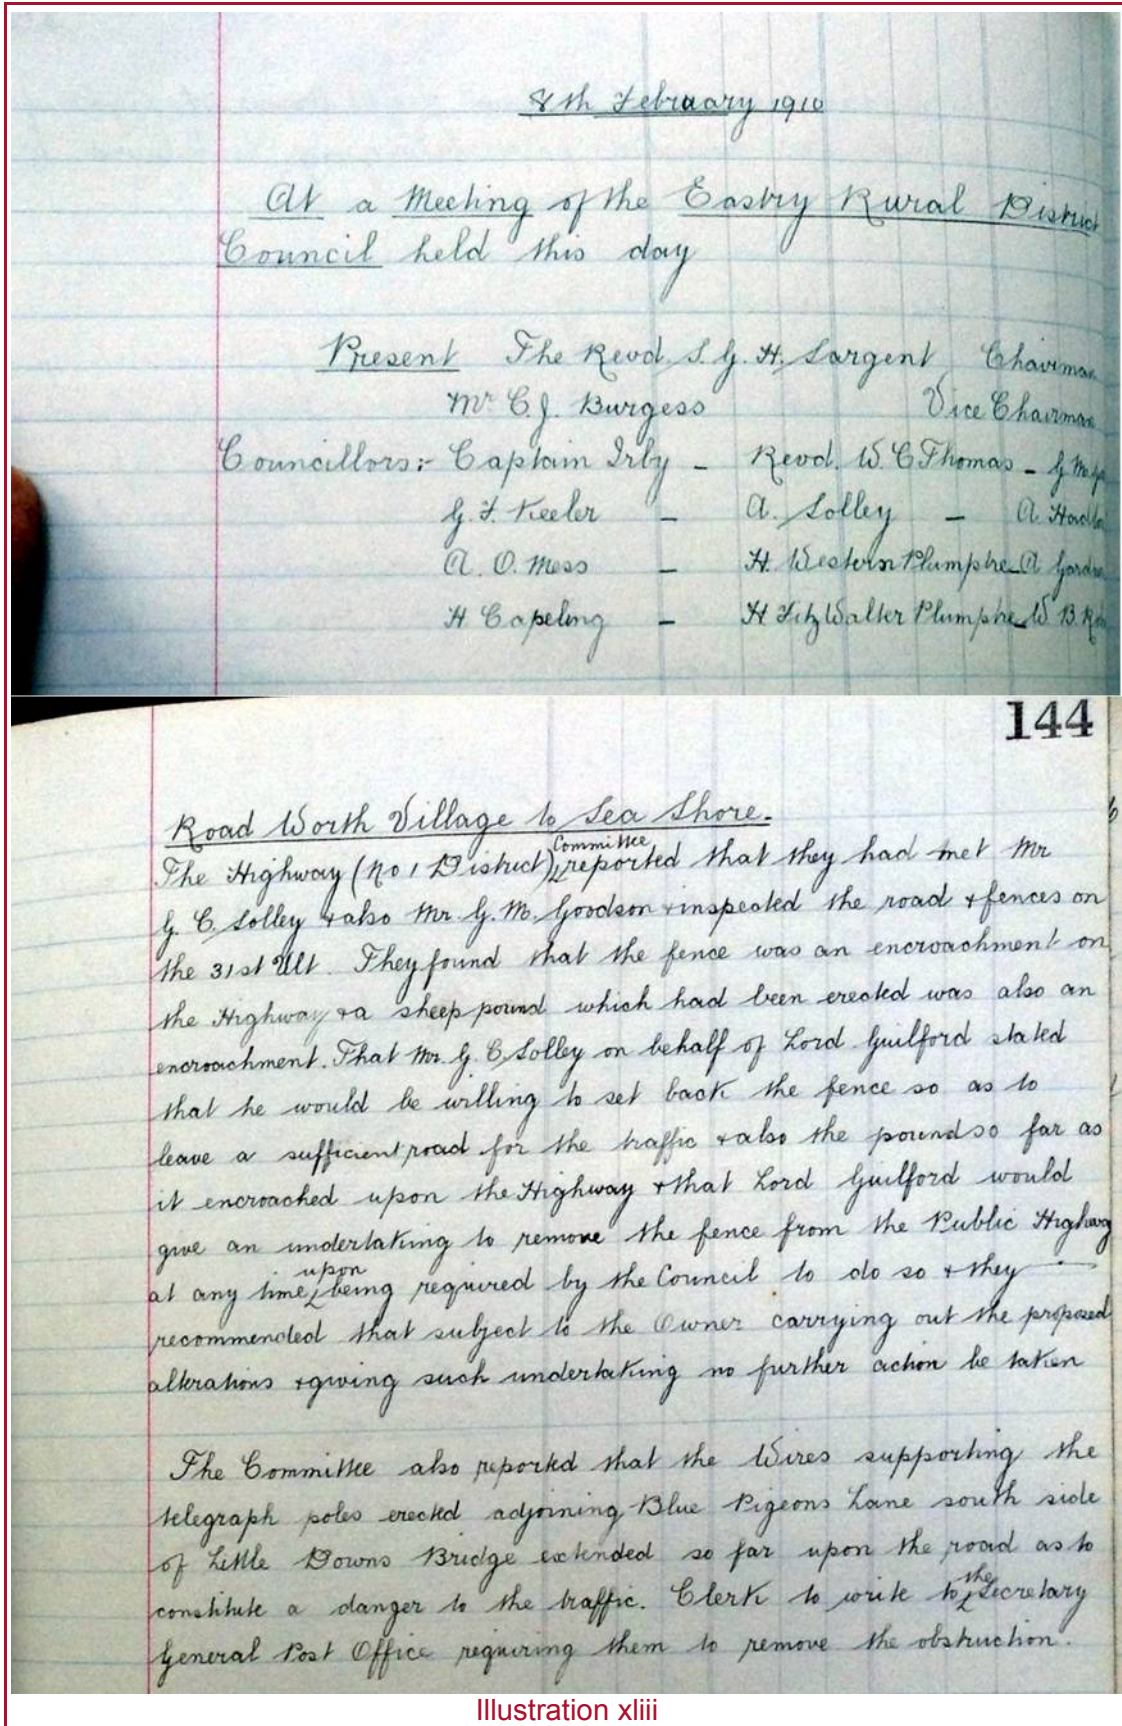 8th February 1910
At a Meeting of the Eastry Rural District
Council held this day
Present The Revd. S. G. H. Sargent Chairman
Mr C. J. Burgess Vice Chairman
Councillors:- Captain Irby - Revd. W. C Thomas - G
G. F. Keeler - A. Solley - A.
A. O. Mess - H. Western Plumptre A
H Capeling - H FitzWalter Plumptre W B.
144
Road Worth Village to Sea Shore.
The Highway (No 1 District) Committee reported that they had met Mr
G. C. Solley & also Mr. G. M. Goodson & inspected the road & fences on
the 31st Ult. They found that the fence was an encroachment on
the Highway & a sheep pound which had been erected was also an
encroachment. That Mr. G. C. Solley on behalf of Lord Guilford stated
that he would be willing to set back the fence so as to
leave a sufficient road for the traffic & also the pound so far as
it encroached upon the Highway & that Lord Guilford would
give an undertaking to remove the fence from the Public Highway
at any time upon being required by the Council to do so & they
recommended that subject to the Owner carrying out the proposed
alterations & giving such undertaking no further action be taken
The Committee also reported that the Wires supporting the
telegraph poles erected adjoining Blue Pigeons Lane south side
of Little Downs Bridge extended so far upon the road as to
constitute a danger to the traffic. Clerk to write to the Secretary
General Post Office requiring them to remove the obstruction.
Illustration xliii